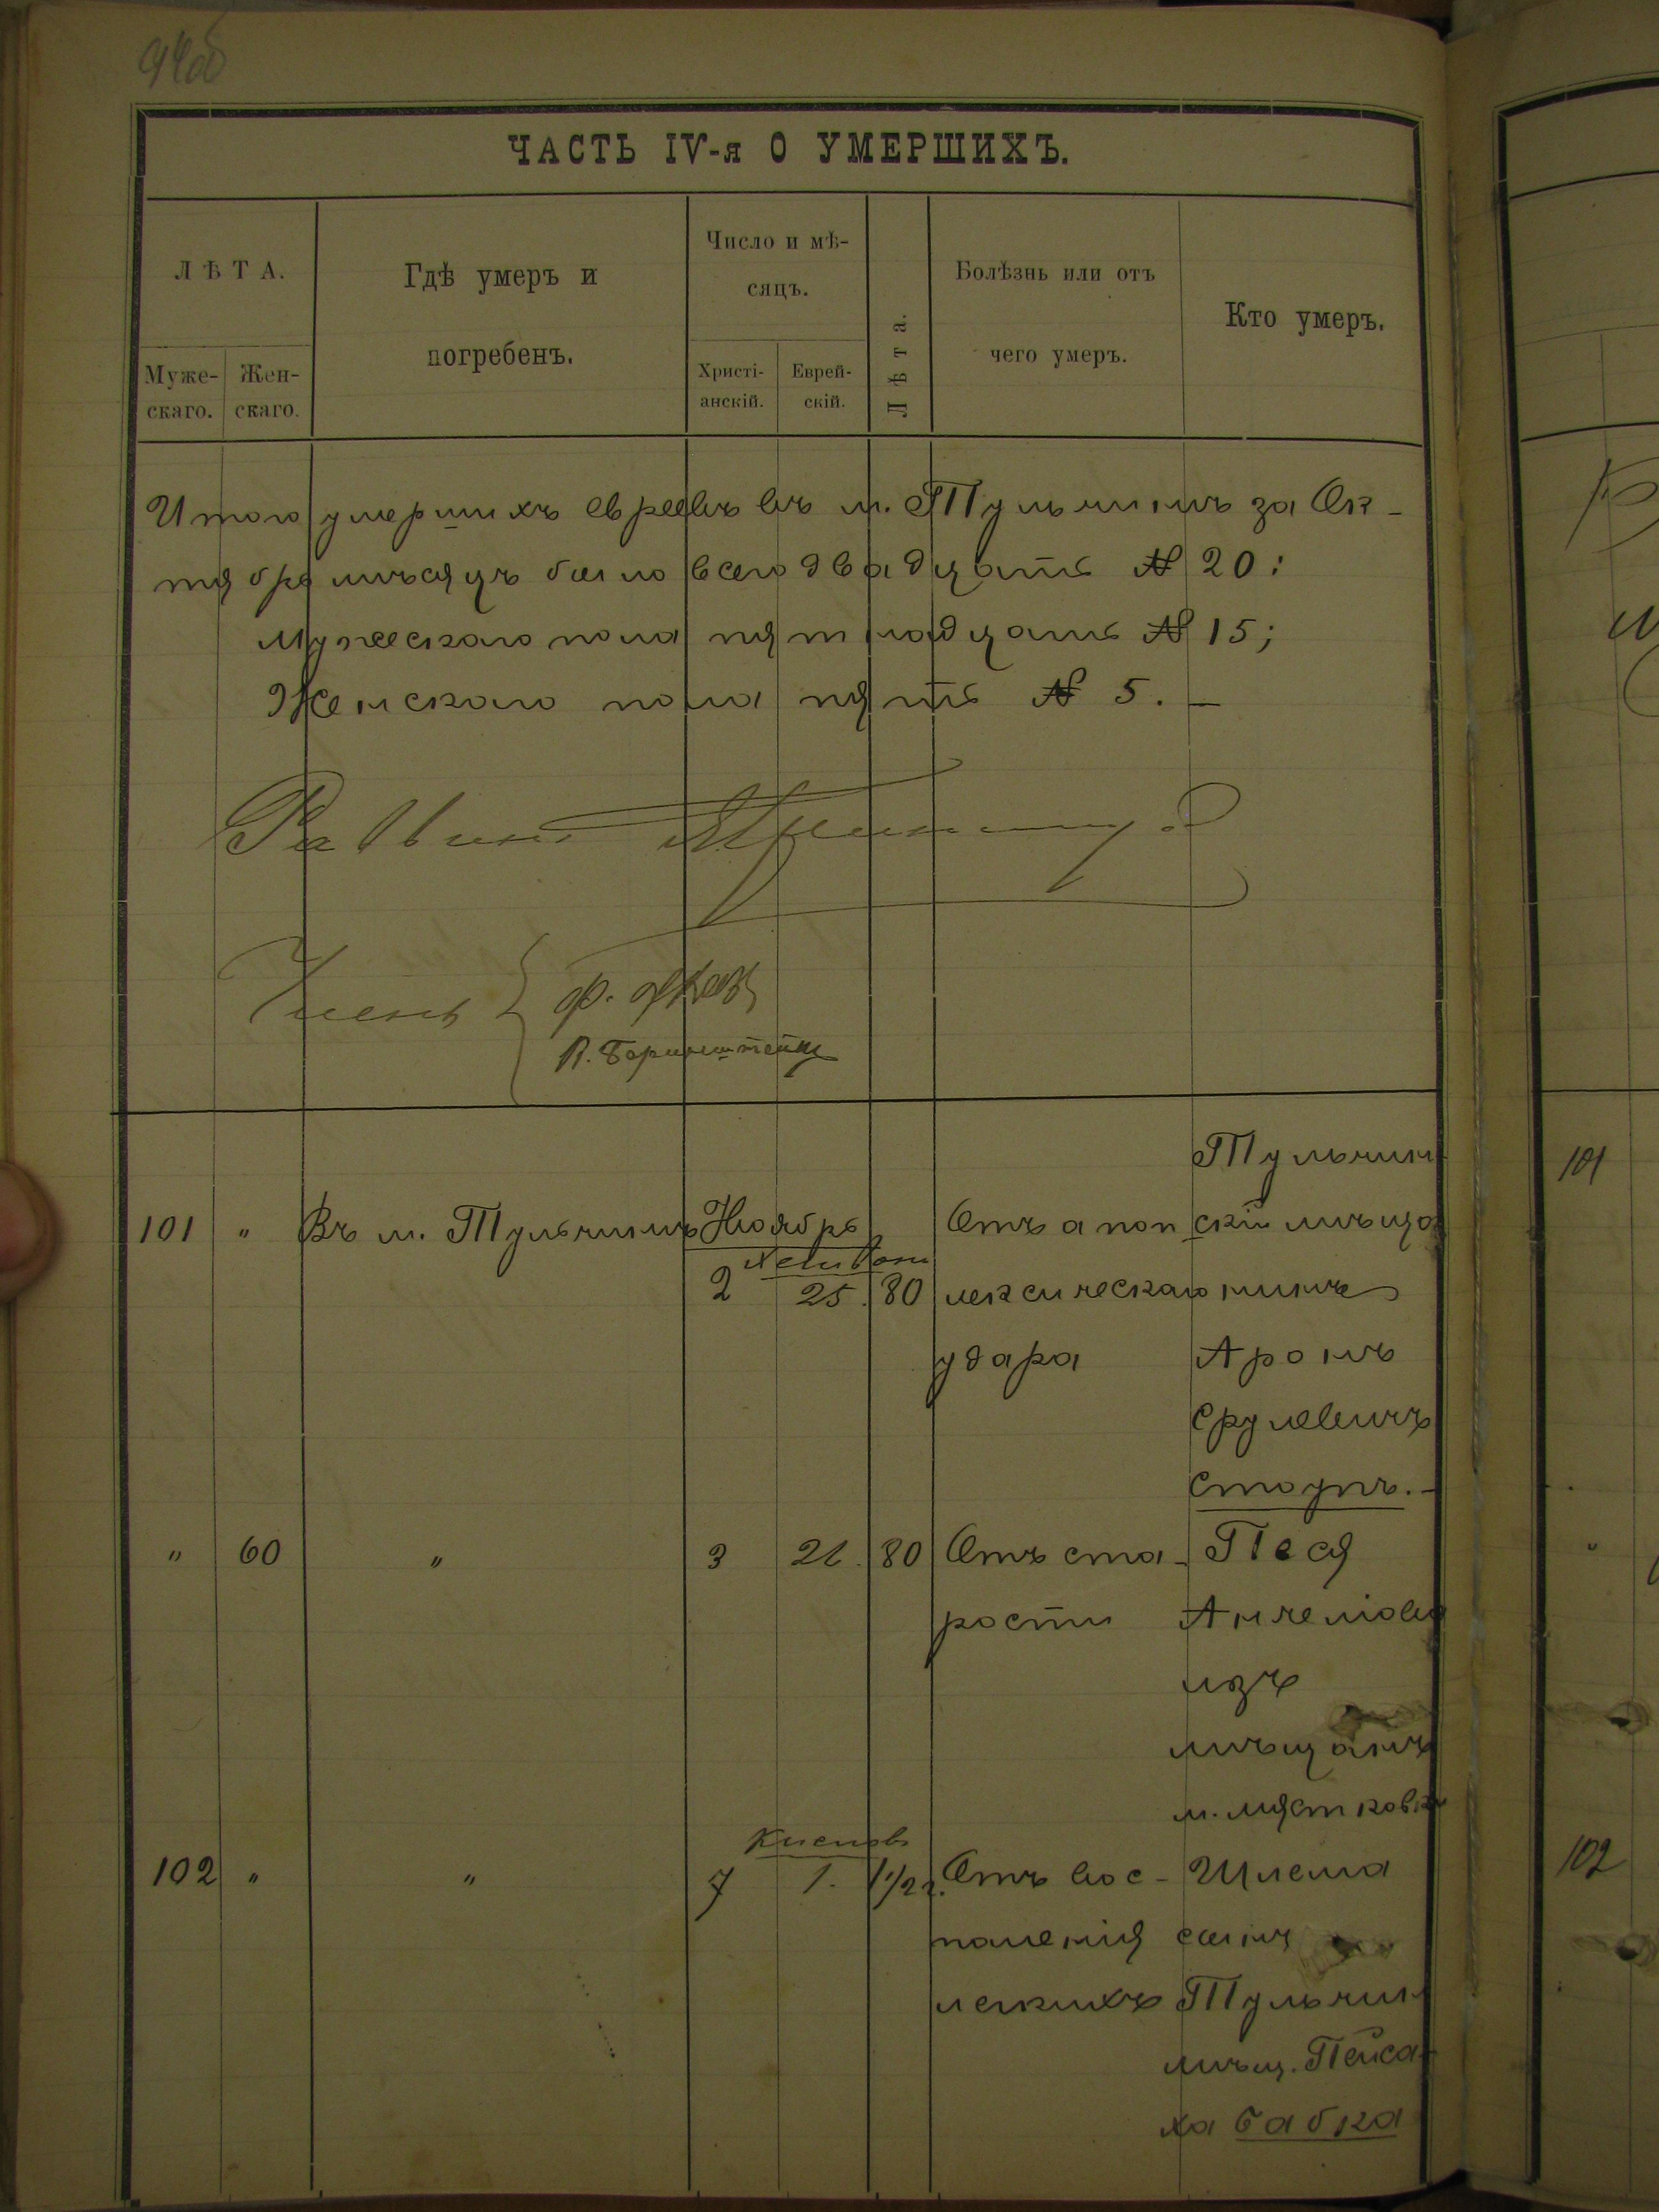 94об
ЧАСТЬ IV-я О УМЕРШИХЪ.
ЛѢТА.
Муже-
скаго.
Жен-
скаго.
Гдѣ умеръ и
погребенъ.
Число и мѣ-
сяцъ.
Христі-
анскій.
Еврей-
скій.
Лѣта.
Болѣзнь или отъ
чего умеръ.
Кто умеръ.
Итого умершихъ евреевъ въ м. Тульчинѣ за Ок-
тябрь мѣсяцъ было всего двадцать № 20:
Мужескаго пола пятнадцать № 15;
Женскаго пола пять № 5. —
Раввинъ
Члены
В. Беринштейнъ
101 " Въ м. Тульчинѣ Ноябрь 2 25. 80
Отъ апоп
лексическаго
удара
Тульчин
скій мѣща
нинъ
Аронъ
Срулевичъ
Стояръ. -
" 60 " 3 26. 80
Отъ ста-
рости
Песя
Анчелiова
изъ
мѣщанъ
м. Мястковки
102 " " Кислевъ 7 1. 1 1/2 г.
Отъ вос-
паленія
легкихъ
Шлема
сынъ
Тульчин
мѣщ. Пейса-
ха Бабка
101
102